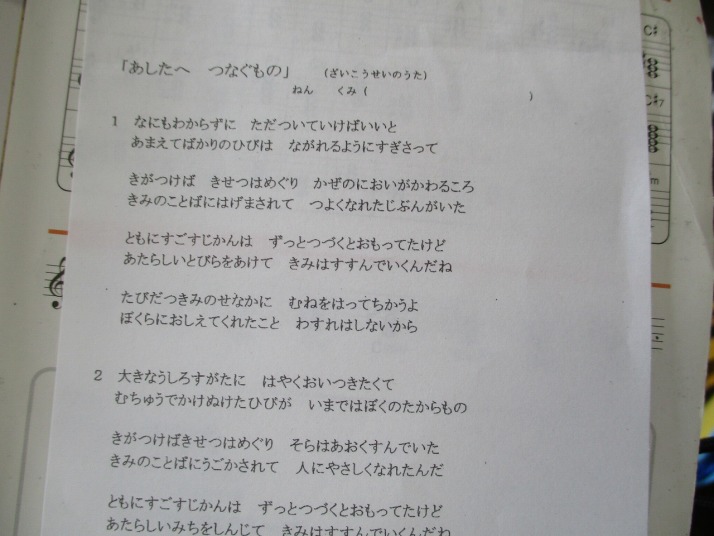 「あしたへ　つなぐもの」　（ざいこうせいのうた）
ねん　くみ（　　　　　　　　）
1　なにもわからずに　ただついていけばいいと
あまえてばかりのひびは　ながれるようにすぎさって
きがつけば　きせつはめぐり　かぜのにおいがかわるころ
きみのことばにはげまされて　つよくなれたじぶんがいた
ともにすごすじかんは　ずっとつづくとおもってたけど
あたらしいとびらをあけて　きみはすすんでいくんだね
たびだつきみのせなかに　むねをはってちかうよ
ぼくらにおしえてくれたこと　わすれはしないから
2　大きなうしろすがたに　はやくおいつきたくて
むちゅうでかけぬけたひびが　いまではぼくのたからもの
きがつけばきせつはめぐり　そらはあおくすんでいた
きみのことばにうごかされて　人にやさしくなれたんだ
ともにすごすじかんは　ずっとつづくとおもってたけど
あたらしいみちをしんじて　きみはすすんでいくんだね
C#
C#7
m